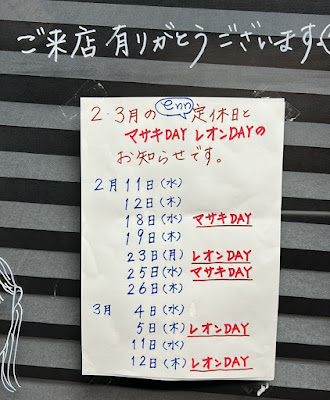 ご来店有りがとうございます
2・3月の enn 定休日と
マサキDAY レオンDAYの
お知らせです。
2月 11日(水)
12日(木)
18日(水) マサキDAY
19日(木)
23日(月) レオンDAY
25日(水) マサキDAY
26日(木)
3月 4日(水)
5日(木) レオンDAY
11日(水)
12日(木) レオンDAY